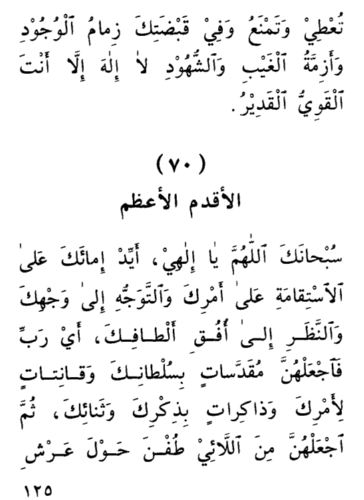 تُعْطِيْ وَتَمْنَعُ وَفِيْ قَبْضَتِكَ زِمامُ ٱلْوُجُوْدِ
وَأَزِمَّةُ ٱلْغَيْبِ وَٱلشُّهُوْدِ لاٰ إِلٰهَ إِلَّا أَنْتَ
ٱلْقَوِيُّ ٱلْقَدِيْرُ.
(٧٠)
الأقدم الأعظم
سُبْحانَكَ ٱللّٰهُمَّ يٰا إِلٰهِيْ، أَيِّدْ إِمائَكَ عَلىٰ
ٱلاْسْتِقامَةِ عَلىٰ أَمْرِكَ وَٱلتَّوَجُّهِ إِلىٰ وَجْهِكَ
وَٱلنَّظَـرِ إِلـىٰ أُفُـقِ أَلْطـافِـكَ، أَيْ رَبِّ
فَٱجْعَلْهُنَّ مُقَدَّساتٍ بِسُلْطانِـكَ وَقـانِتـاتٍ
لِأَمْرِكَ وَذاكِراتٍ بِذِكْرِكَ وَثَنائِكَ، ثُمَّ
ٱجْعَلْهُنَّ مِنَ ٱللَّائِيْ طُفْـنَ حَـوْلَ عَـرْشِ
١٢٥